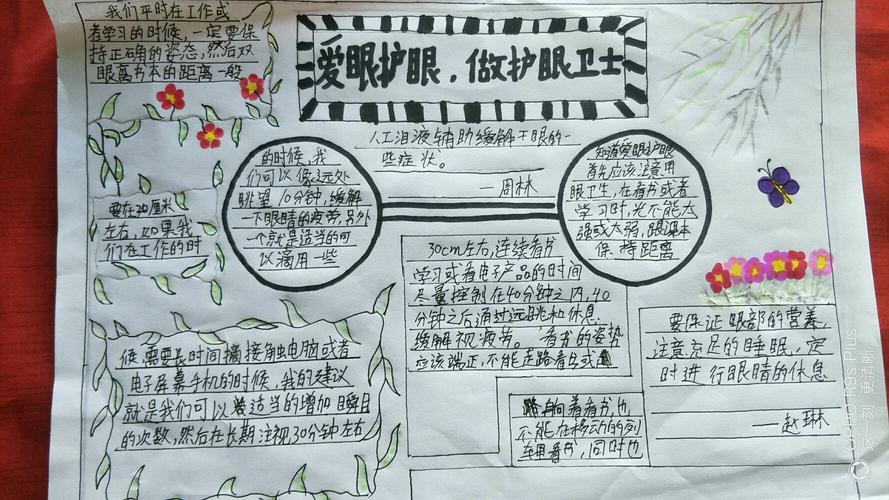 爱眼护眼，做护眼卫士
我们平时在工作或
者学习的时候，一定要保
持正确的姿态，然后双
眼离书本的距离一般
要在30厘米
左右，如果我
们在工作的时
候，需要长时间接触电脑或者
电子屏幕手机的时候，我的建议
就是我们可以适当的增加瞬目
的次数，然后在长期注视30分钟左右
的时候，我
们可以像远处
眺望10分钟，缓解
一下眼睛的疲劳，另外
一个就是适当的可
以滴用一些
人工泪液辅助缓解干眼的一
些症状。
——周林
知道爱眼护眼
首先应该注意用
眼卫生，在看书或者
学习时，光不能太
强或太弱，眼课本
保持距离
30cm左右，连续看书
学习或看电子产品的时间
尽量控制在40分钟之内，40
分钟之后通过远眺和休息
缓解视疲劳。看书的姿势
应该端正，不能走路看书或
躺着看书，也
不能在移动的列
车里看书，同时也
要保证眼部的营养，
注意充足的睡眠，定
时进行眼睛的休息
——赵琳
OPPO R9s Plus
这一刻 更清晰